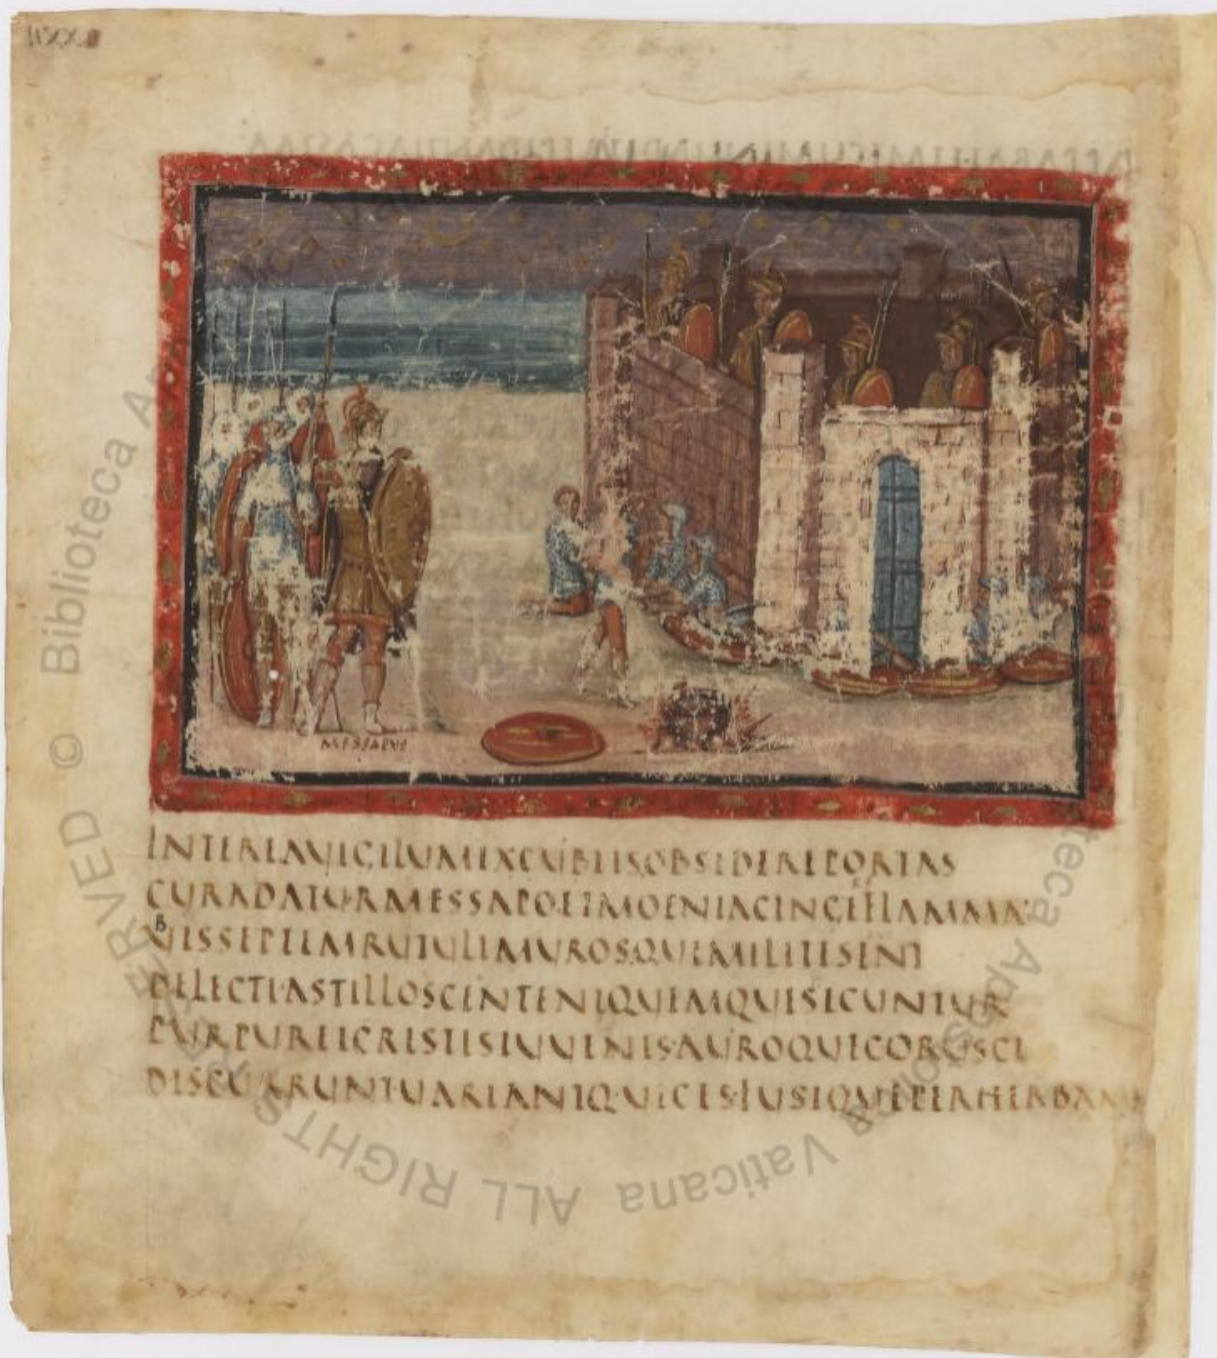 MESSAPUS
INTEREAVIGILUMEXCUBIISOBSIDEREPORTAS
CURADATURMESSAPOETMOENIACINGEFLAMMA
B
VISSEPTEMRUTULIMUROSQUEMILITESENT
DELECTI·ASTILLOSCENTENIQUEMQUESECUNTUR
PURPUREICRISTISIUVENES·AUROQUECORUSCI
DISCURRUNTVARIANTQ·VICES·FUSIQUEPERHERBAM
© Biblioteca Apostolica Vaticana ALL RIGHTS RESERVED